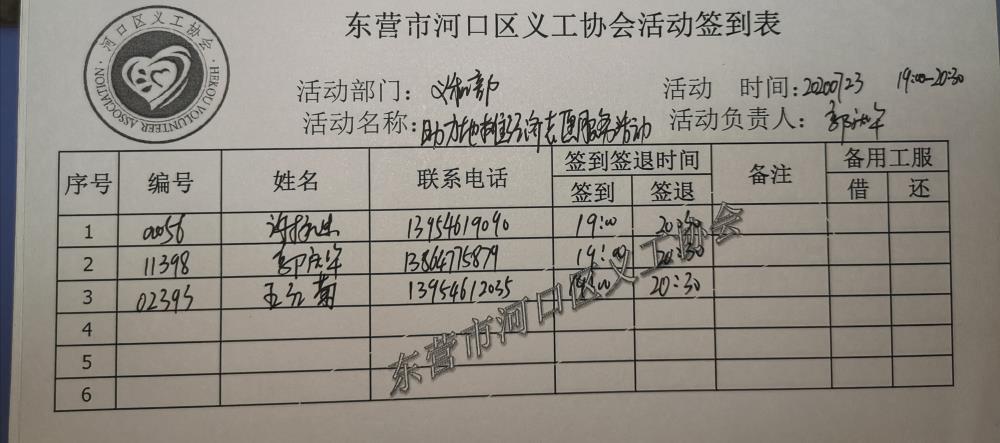 东营市河口区义工协会活动签到表
河口区义工协会
HEKOU VOLUNTEER ASSOCIATION
活动部门：
活动 时间：20200723 19:00-20:30
活动名称：助力地摊经济志愿服务活动
活动负责人：郭庆华
序号 编号 姓名 联系电话 签到签退时间 备注 备用工服
签到 签退 借 还
1 0056 13954619090 19:00 20:30
2 11398 郭庆华 13864775879 19:00 20:30
3 02393 王立菊 13954612035 19:00 20:30
4
5
6
东营市河口区义工协会